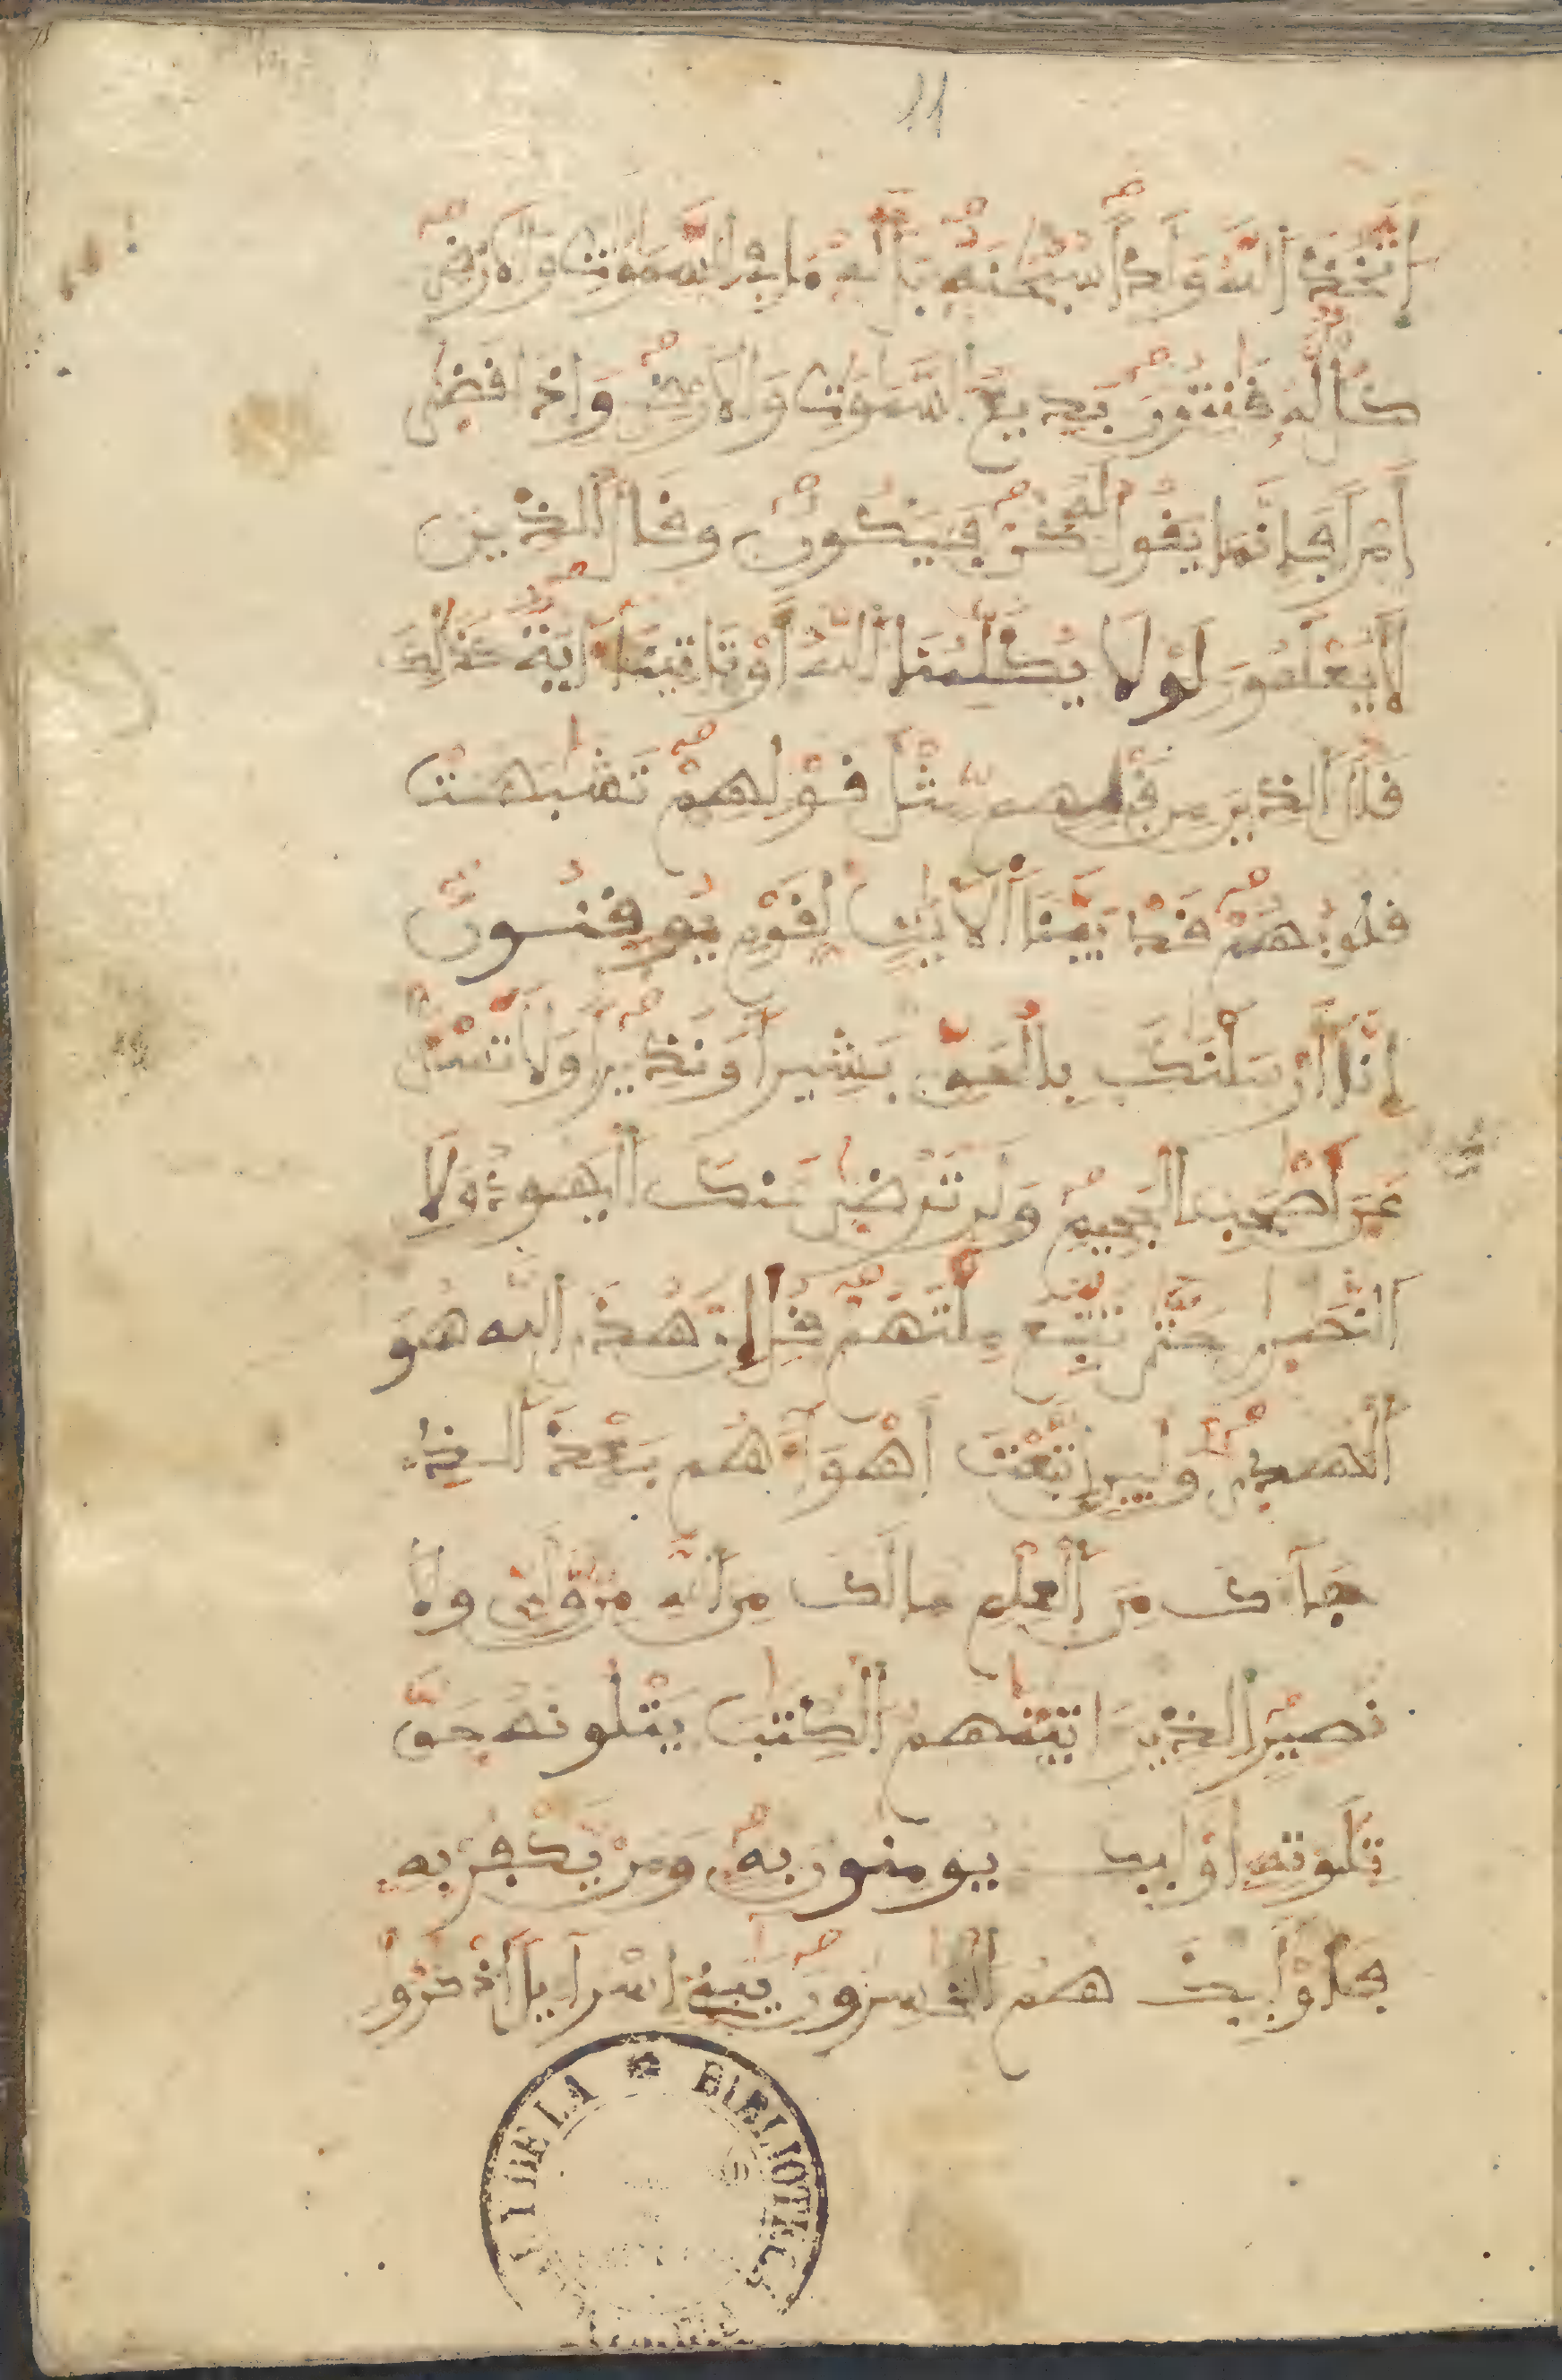 11
اتَّخَذَ اللَّهُ وَلَدًا سُبْحَنَهُ بَل لَّهُ مَا فِى السَّمَوَتِ وَالَارْضِ
كُلٌّ لَّهُ قَنِتُونَ بَدِيعُ السَّمَوَتِ وَالَارْضِ وَإِذَا قَضَى
أَمْرًا فَإِنَّمَا يَقُولُ لَهُ كُن فَيَكُونُ وَقَالَ الذِينَ
لَا يَعْلَمُونَ لَوْلَا يُكَلِّمُنَا اللَّهُ أَوْ تَاتِينَا ءَايَةٌ كَذَلِكَ
قَالَ الذِينَ مِن قَبْلِهِم مِّثْلَ قَوْلِهِمْ تَشَبَهَتْ
قُلُوبُهُمْ قَدْ بَيَّنَّا الَايَتِ لِقَوْمٍ يُوقِنُونَ
إِنَّا أَرْسَلْنَكَ بِالْحَقِّ بَشِيرًا وَنَذِيرًا وَلَا تَسْئَلْ
عَنَ اَصْحَبِ الْجَحِيمِ وَلَن تَرْضَى عَنكَ الْيَهُودُ وَلَا
النَّصَرَى حَتَّى تَتَّبِعَ مِلَّتَهُمْ قُلِ انَّ هُدَى اللَّهِ هُوَ
الْهُدَى وَلَئِنِ اتَّبَعْتَ أَهْوَآءَهُم بَعْدَ الَّذِى
جَآءَكَ مِنَ الْعِلْمِ مَا لَكَ مِنَ اللَّهِ مِن وَّلِىٍّ وَلَا
نَصِيرٍ الذِينَ ءَاتَيْنَهُمُ الْكِتَبَ يَتْلُونَهُ حَقَّ
تِلَوَتِهِ أُوْلَئِكَ يُومِنُونَ بِهِ وَمَنْ يَكْفُرْ بِهِ
فَأُوْلَئِكَ هُمُ الْخَسِرُونَ يَبَنِى إِسْرَآءِيلَ اَذْكُرُوا
BIBLIOTEC
DE LA